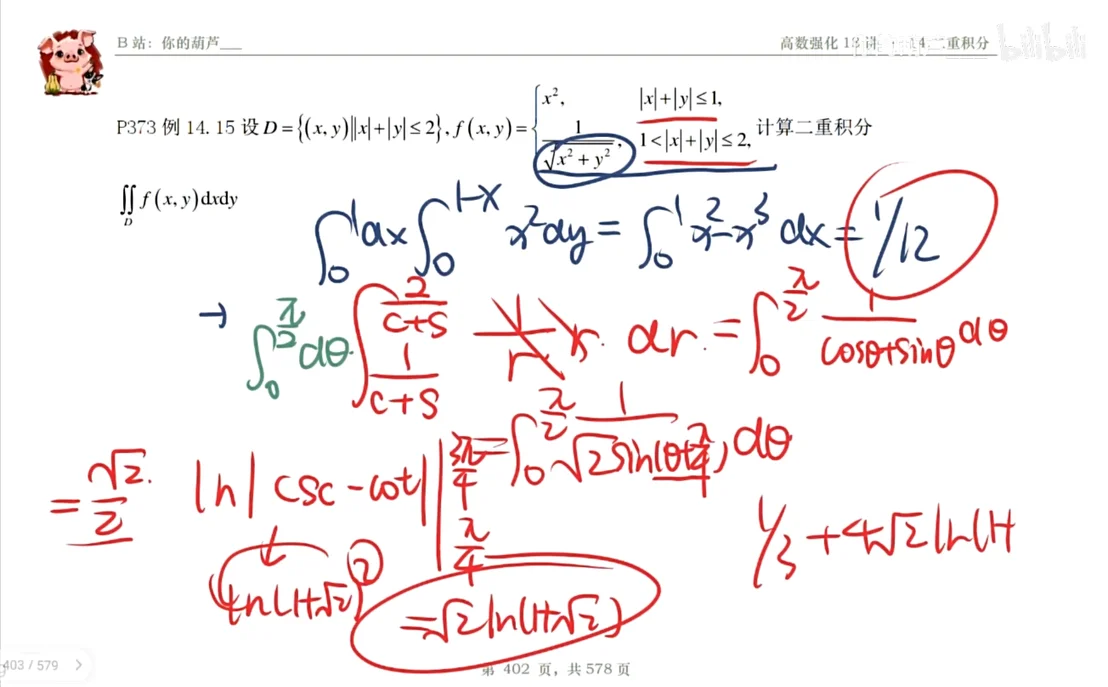 B 站：你的葫芦___
高数强化 1
bilibili
P373 例 14. 15 设 D = {(x, y)||x|+|y| ≤ 2}, f (x, y) = { x², |x|+|y| ≤ 1, 1/√(x² + y²), 1 < |x|+|y| ≤ 2, 计算二重积分
∬_D f (x, y)dxdy
∫₀¹ dx ∫₀^(1-x) x² dy = ∫₀¹ x² - x³ dx = 1/12
→ ∫₀^(π/2) dθ ∫_(1/(c+s))^(2/(c+s)) 1/r · r dr = ∫₀^(π/2) 1/(cosθ+sinθ) dθ
= ∫₀^(π/2) 1/(√2 sin(θ+π/4)) dθ
= √2/2 ln|csc - cot| |_(π/4)^(3π/4)
ln(1+√2)²
= √2 ln(1+√2)
1/3 + 4√2 ln(1+
403 / 579 >
第 402 页，共 578 页